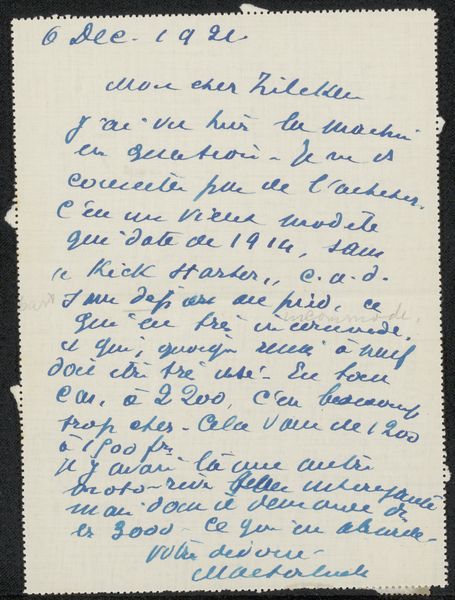 6 Dec. 1921
Mon cher Zilcken
J'ai vu hier la machine
en question - Je ne vs
conseille pas de l'acheter.
C'en un vieux modèle
qui date de 1914, sans
"Kick Starter", c.a.d.
au pied, ce
incommode.
qui en très incommode,
et qui, quoique remis à neuf
doit être très usé - En tous
cas, à 2200, c'en beaucoup
trop cher - Cela vaut de 1200
à 1500 frs.
Il y avait là une autre
moto - intéressante
mais dont il demande
3000 - ce qui en absurde -
votre dévoué -
Maeterlinck